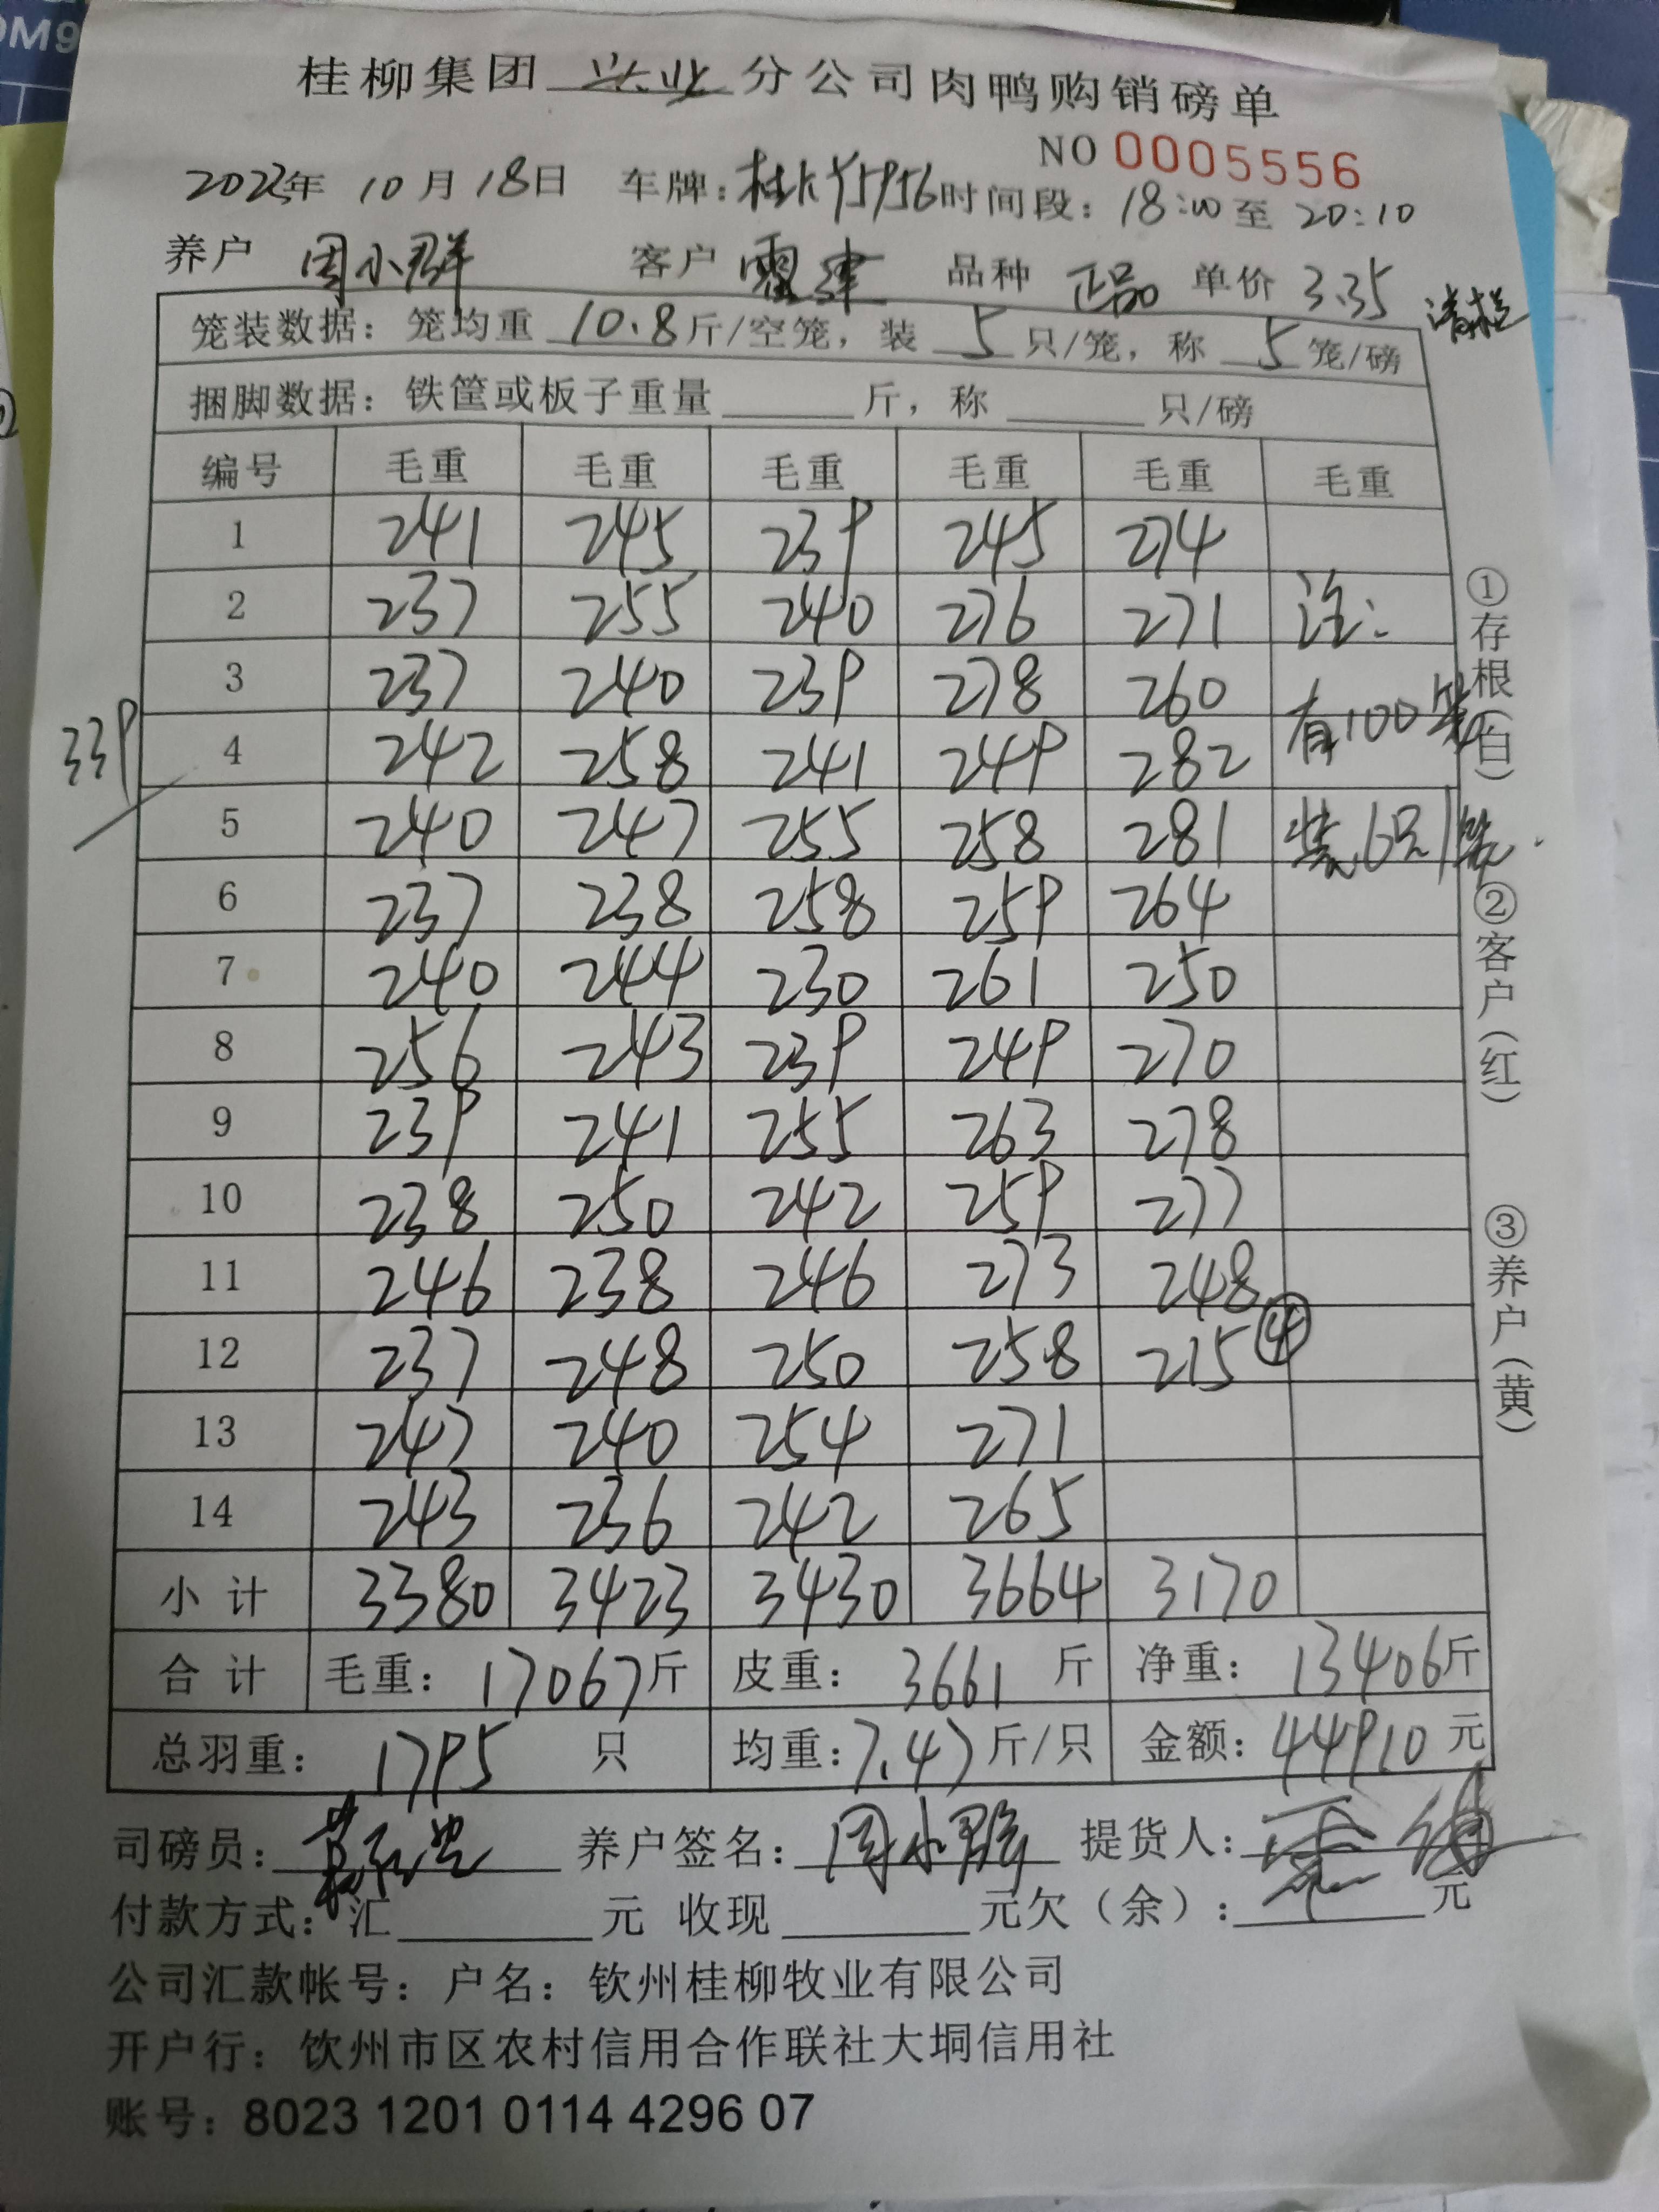 桂柳集团 兴业 分公司肉鸭购销磅单
NO 0005556
2023年 10月18日 车牌: 时间段: 18:00至 20:10
养户 周小群 客户 雷 品种 正品 单价 3.35 清栏
笼装数据: 笼均重 10.8斤/空笼, 装 5 只/笼, 称 5 笼/磅
捆脚数据: 铁筐或板子重量 斤, 称 只/磅
编号 毛重 毛重 毛重 毛重 毛重 毛重
1 241 245 239 245 274
2 237 255 240 276 271 注:
3 237 240 239 278 260 有100笼
339 4 242 258 241 249 282
5 240 247 255 258 281 装6只/笼
6 237 238 258 259 264
7 240 244 230 261 250
8 256 243 239 249 270
9 239 241 255 263 278
10 238 250 242 259 277
11 246 238 246 273 248
12 237 248 250 258 215 ④
13 247 240 254 271
14 243 236 242 265
小计 3380 3423 3430 3664 3170
合计 毛重: 17067斤 皮重: 3661 斤 净重: 13406斤
总羽重: 1795 只 均重:7.47斤/只 金额: 44910 元
司磅员: 养户签名: 周小群 提货人:
付款方式: 汇 元 收现 元欠(余): 元
公司汇款帐号: 户名: 钦州桂柳牧业有限公司
开户行: 饮州市区农村信用合作联社大垌信用社
账号: 8023 1201 0114 4296 07
①存根(白) ②客户(红) ③养户(黄)